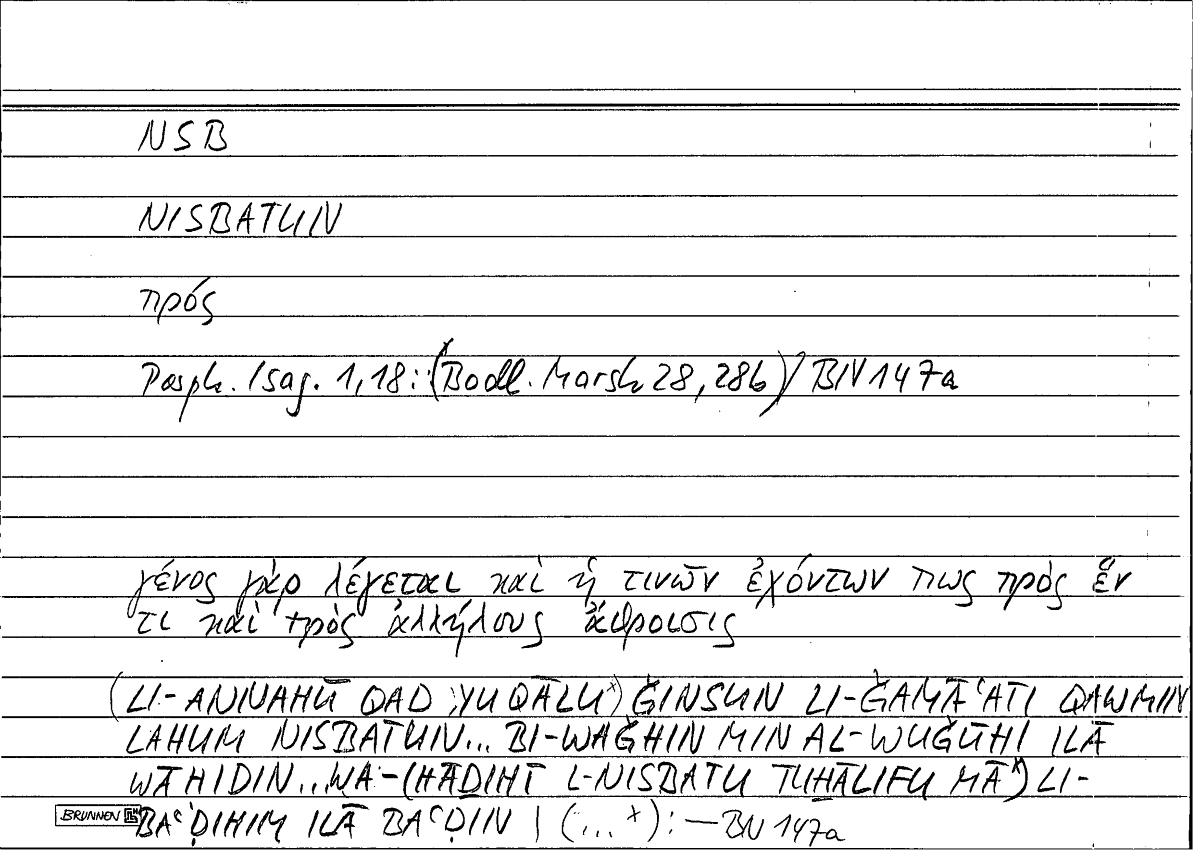 NSB
NISBATUN
πρός
Porph. Isag. 1,18: (ˣBodl. Marsh 28, 28b)/ BN 147a
γένος γὰρ λέγεται καὶ ἡ τινῶν ἐχόντων πως πρὸς ἕν
τι καὶ πρὸς ἀλλήλους ἄθροισις
(LI-ANNAHŪ QAD YUQĀLUˣ) ĞINSUN LI-ĞAMĀʿATI QAWMIN
LAHUM NISBATUN... BI-WAĞHIN MIN AL-WUĞŪHI ILĀ
WĀHIDIN...WA-(HĀḎIHĪ L-NISBATU TUHĀLIFU MĀˣ) LI-
BAʿḌIHIM ILĀ BAʿḌIN | (...ˣ): — BN 147a
BRUNNEN